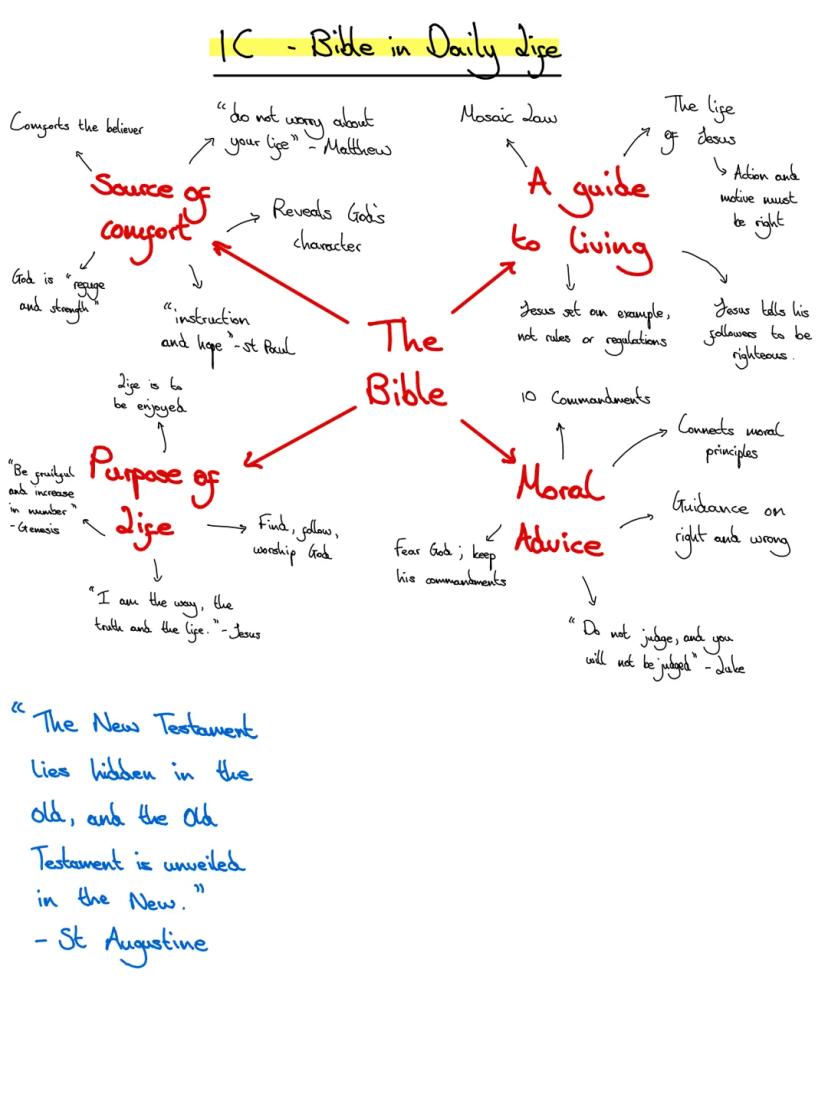 1C - Bible in Daily Life
Comforts the believer
"do not worry about
your life" - Matthew
Source of
comfort
Reveals God's
character
God is "refuge
and strength"
"instruction
and hope" - St Paul
Mosaic Law
The life
of Jesus
Action and
motive must
be right
A guide
to living
Jesus set an example,
not rules or regulations
Jesus tells his
followers to be
righteous.
The
Bible
Life is to
be enjoyed
Purpose of
Life
"Be fruitful
and increase
in number"
- Genesis
Find, follow,
worship God
"I am the way, the
truth and the life." - Jesus
10 Commandments
Connects moral
principles
Moral
Advice
Guidance on
right and wrong
Fear God; keep
his commandments
"Do not judge, and you
will not be judged" - Luke
"The New Testament
lies hidden in the
old, and the Old
Testament is unveiled
in the New."
- St Augustine